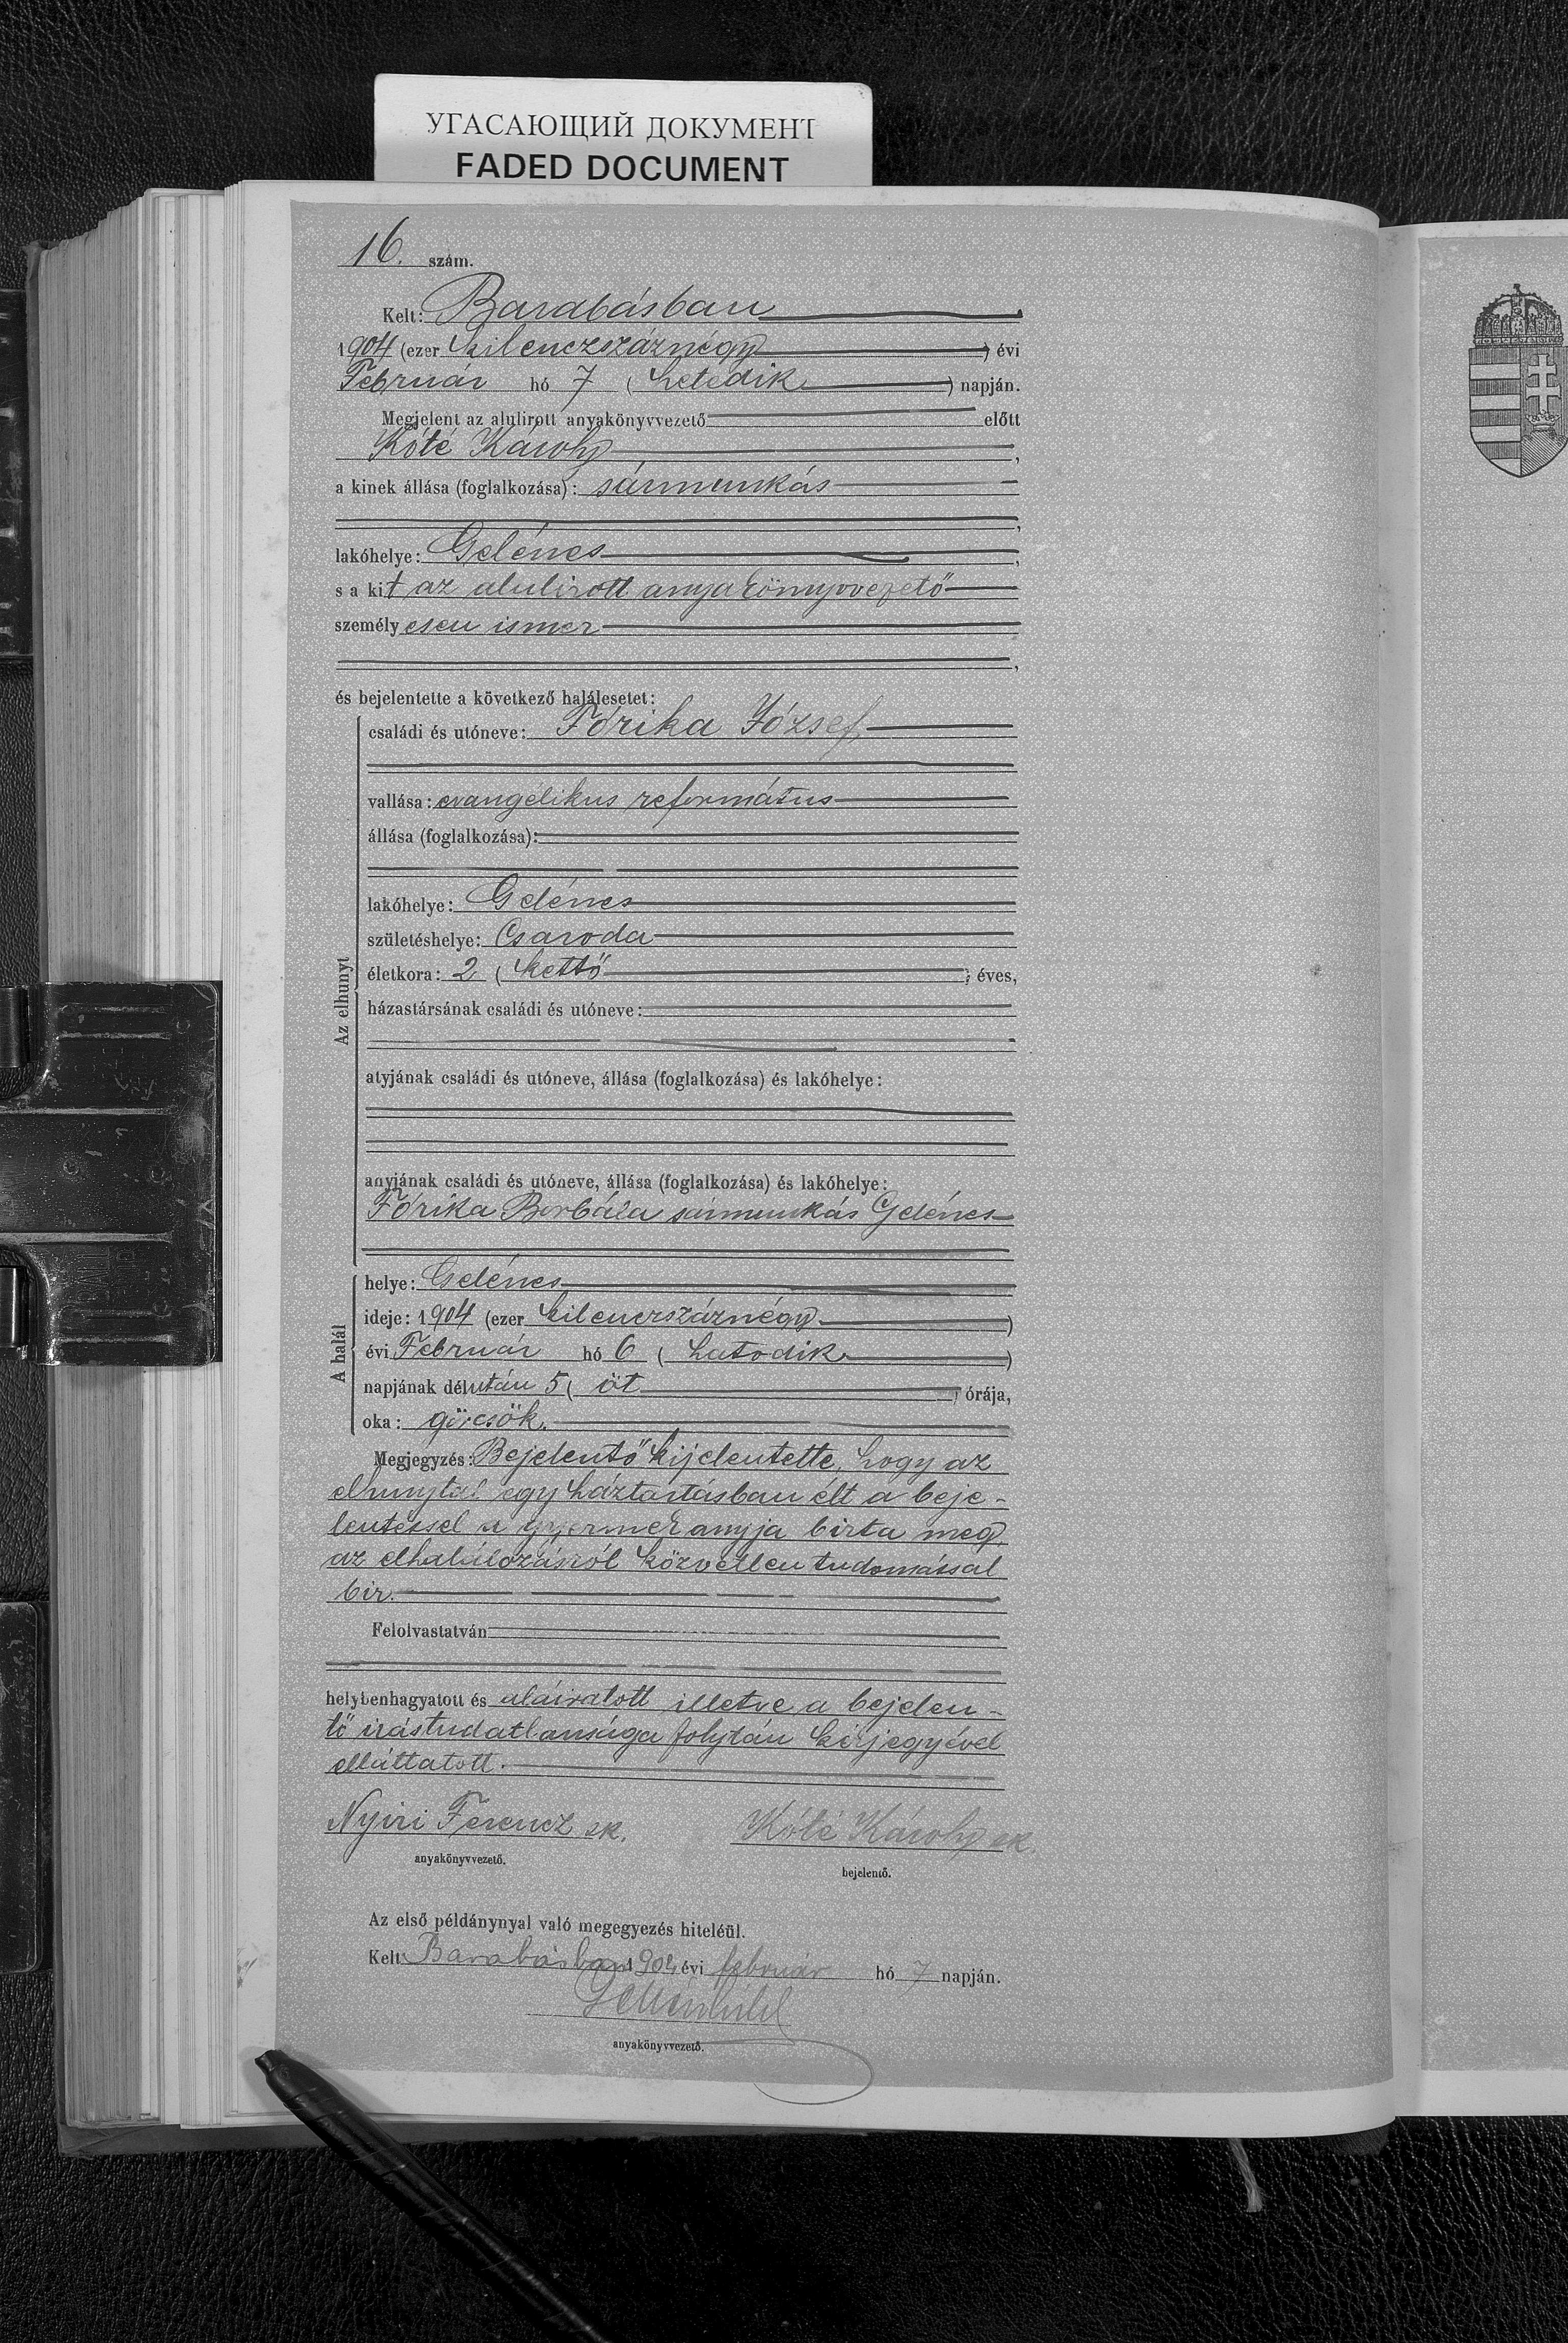 УГАСАЮЩИЙ ДОКУМЕНТ
FADED DOCUMENT
16. szám.
Kelt: Barabásban
1904 (ezer kilenczszáznégy) évi
Február hó 7 (hetedik) napján.
Megjelent az alulirott anyakönyvvezető előtt
Kóté Károly,
a kinek állása (foglalkozása): sármunkás
lakóhelye: Gelénes,
s a kit az alulirott anyakönyvvezető
személyesen ismer,
és bejelentette a következő halálesetet:
Az elhunyt
családi és utóneve: Fórika József,
vallása: evangélikus református
állása (foglalkozása):
lakóhelye: Gelénes
születéshelye: Csaroda
életkora: 2 (kettő) éves,
házastársának családi és utóneve:
atyjának családi és utóneve, állása (foglalkozása) és lakóhelye:
anyjának családi és utóneve, állása (foglalkozása) és lakóhelye:
Fórika Borbála sármunkás Gelénes
A halál
helye: Gelénes
ideje: 1904 (ezer kilenczszáznégy)
évi Február hó 6 (hatodik)
napjának délután 5 (öt) órája,
oka: görcsök.
Megjegyzés: Bejelentő kijelentette, hogy az
elhunytal egy háztartásban élt a beje-
lentéssel a gyermek anyja bizta meg,
az elhalálozásról közvetlen tudomással
bir.
Felolvastatván
helybenhagyatott és aláiratott illetve a bejelen-
tő irástudatlansága folytán kézjegyével
elláttatott.
Nyiri Ferencz sk.
anyakönyvvezető.
Kóté Károly sk.
bejelentő.
Az első példánynyal való megegyezés hiteléül.
Kelt Barabásban 1904 évi február hó 7 napján.
anyakönyvvezető.